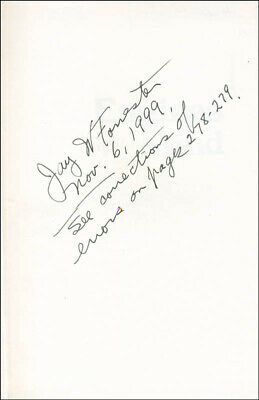 Jay W Forrester
Nov. 6, 1999.
See corrections of
errors on page 278-279.